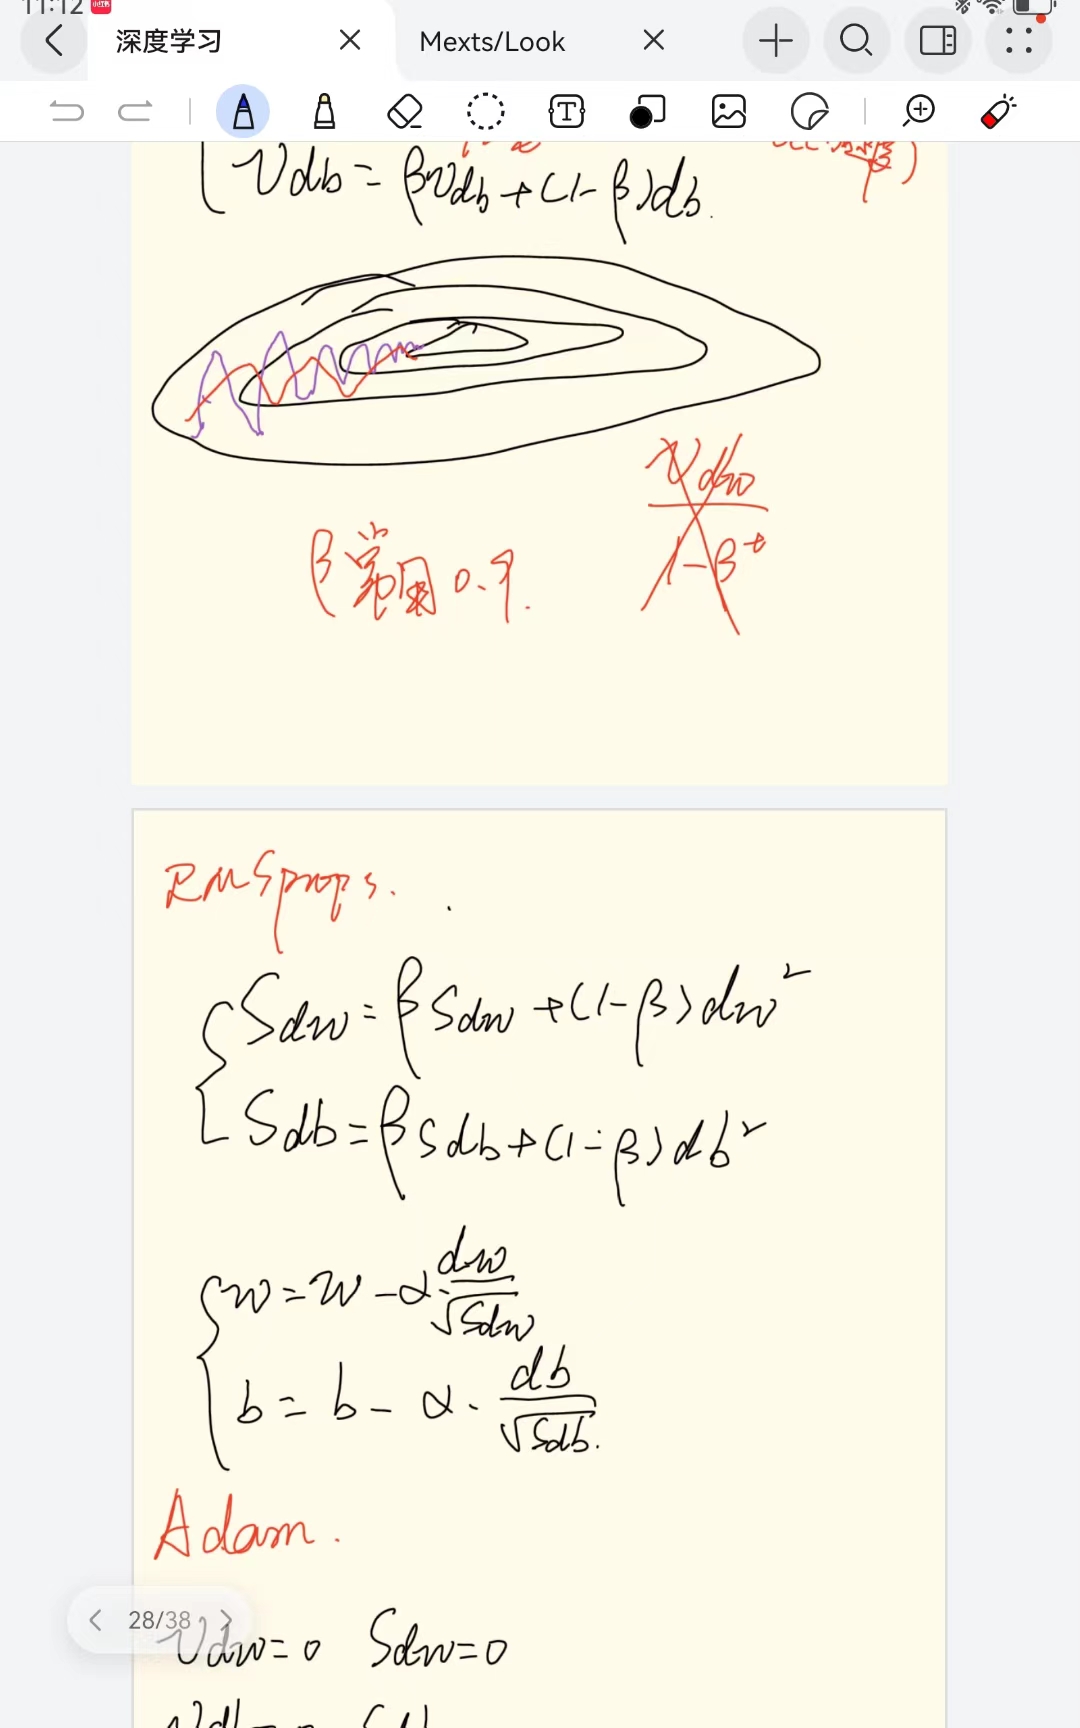 11:12
深度学习
Mexts/Look
T
Vdb = βVdb + (1-β)db.
Vdw
1-β^t
β常用0.9.
RMSprops.
Sdw = βSdw + (1-β)dw²
Sdb = βSdb + (1-β)db²
w = w - α·dw/√Sdw
b = b - α·db/√Sdb.
Adam.
28/38
Vdw=0 Sdw=0